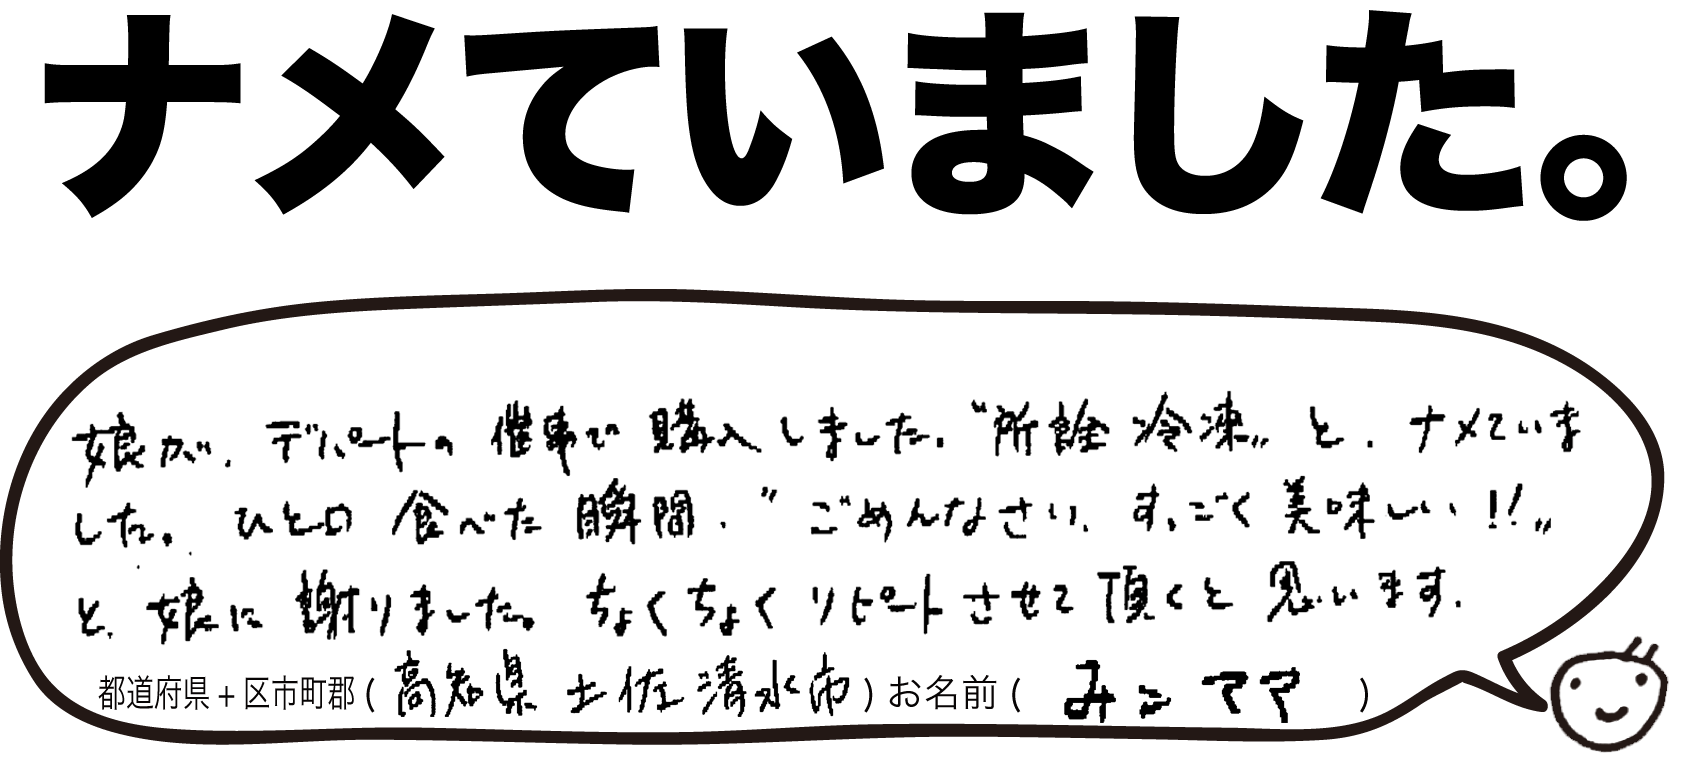 ナメていました。
娘が、デパートの催事で購入しました。“所詮冷凍„と、ナメていま
した。ひと口食べた瞬間、”ごめんなさい、すっごく美味しい!!„
と、娘に謝りました。ちょくちょくリピートさせて頂くと思います。
都道府県+区市町郡(高知県土佐清水市)お名前(みこママ)